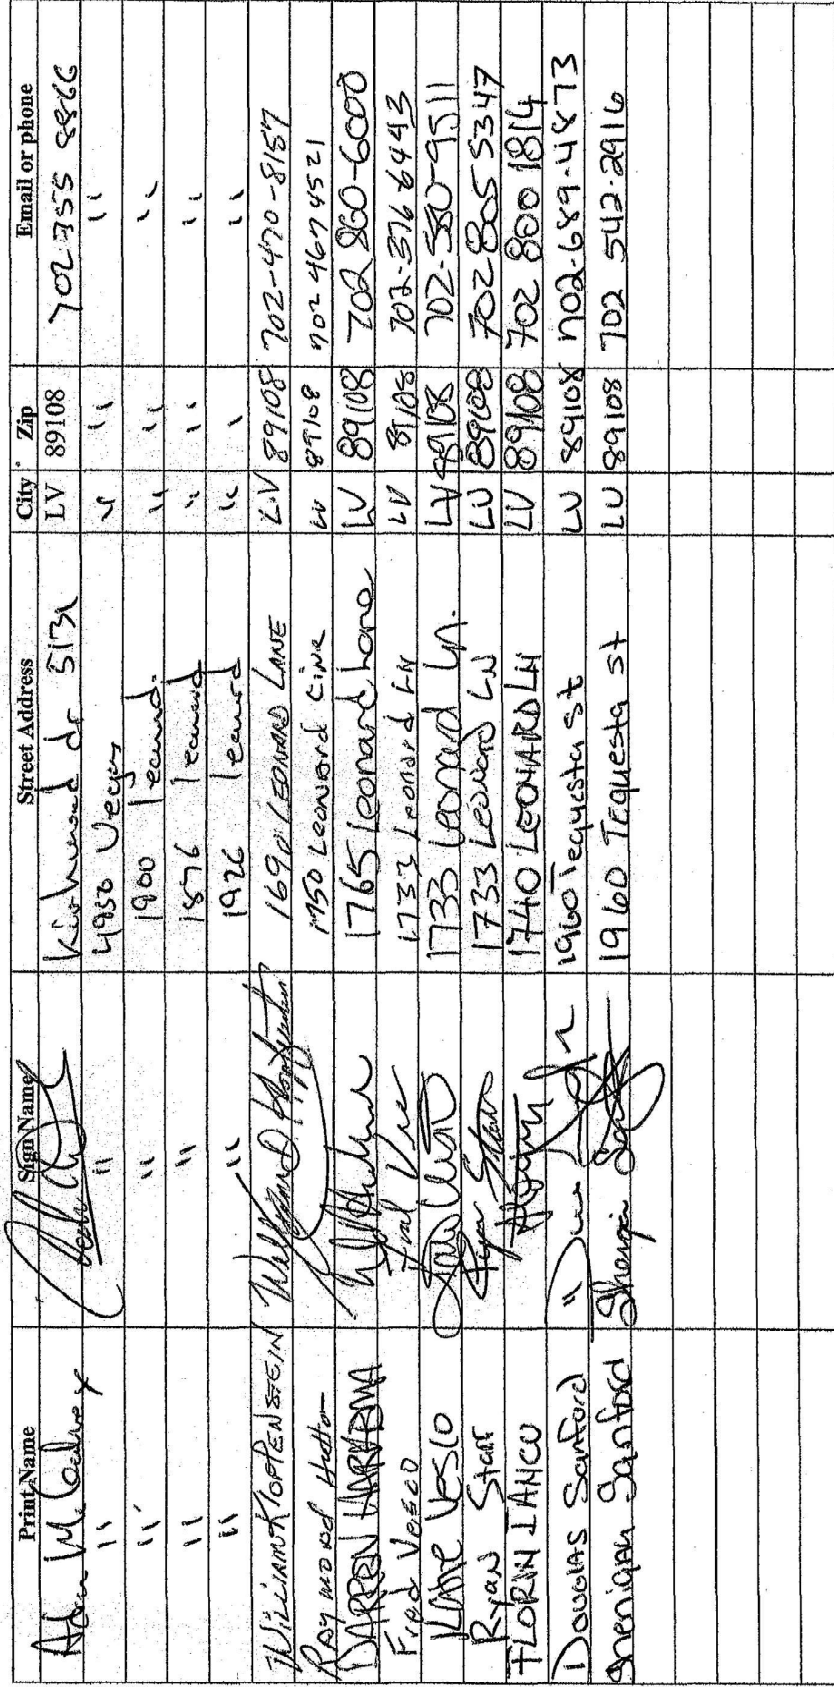 Print Name Sign Name Street Address City Zip Email or phone
Kirkwood dr 5131 LV 89108 702 355 8866
" " 4950 Vegas " " "
" " 1900 Leonard. " " "
" " 1876 Leonard " " "
" " 1926 Leonard " " "
WILLIAM KLOPFENSTEIN 1690 LEONARD LANE L.V 89108 702-470-8157
Raymond Hutto 1750 Leonard LV 89108 702 467 4521
DARREN HARARMA 1765 Leonard Lane LV 89108 702 860-6000
Fred Vesco 1733 Leonard LN LV 89108 702-376 6493
Kane Vesco 1733 Leonard Ln. LV 89108 702-580-9511
Ryan Starr Ryan Starr 1733 Leonard LN LV 89108 702 805 5347
FLORIN IANCU 1740 LEONARD LN LV 89108 702 800 1814
DOUGLAS Sanford " 1960 Tequesta st LV 89108 702-689-4873
Shenigan Sanford 1960 Tequesta st LV 89108 702 542-2916